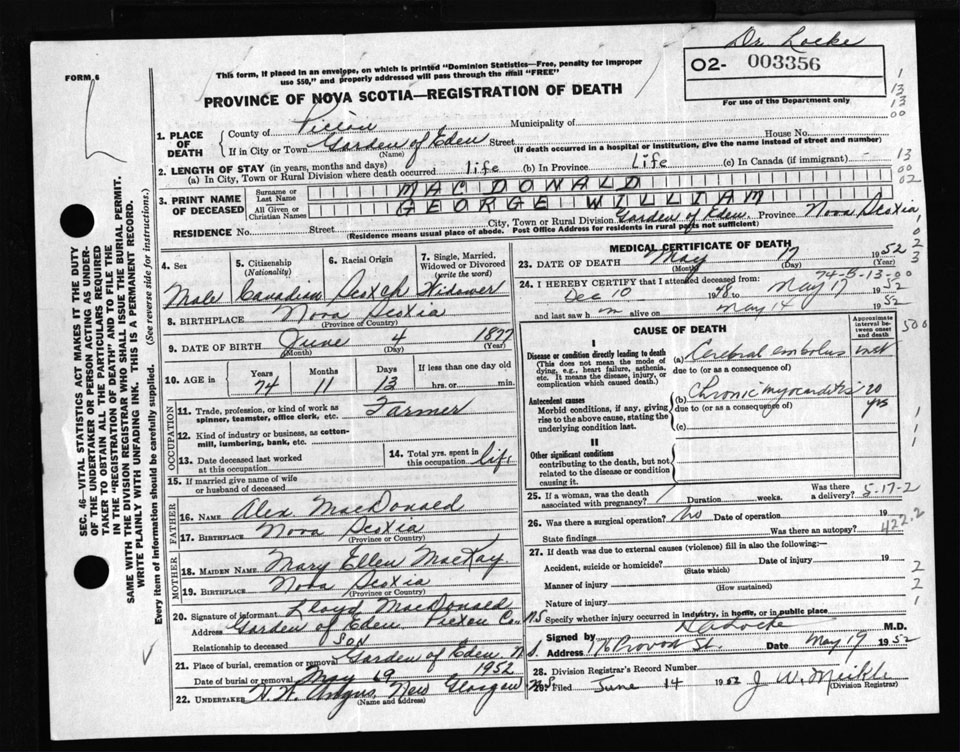 Dr. Locke
FORM 6
This form, if placed in an envelope, on which is printed "Dominion Statistics—Free, penalty for improper
use $50," and properly addressed will pass through the mail "FREE"
O2- 003356
For use of the Department only
PROVINCE OF NOVA SCOTIA—REGISTRATION OF DEATH
1. PLACE OF DEATH
County of Pictou Municipality of
If in City or Town Garden of Eden Street House No.
(Name) (If death occurred in a hospital or institution, give the name instead of street and number)
2. LENGTH OF STAY (in years, months and days)
(a) In City, Town or Rural Division where death occurred life (b) In Province Life (c) In Canada (if immigrant)
3. PRINT NAME OF DECEASED
Surname or Last Name MACDONALD
All Given or Christian Names GEORGE WILLIAM
RESIDENCE No. Street City, Town or Rural Division Garden of Eden. Province Nova Scotia
(Residence means usual place of abode. Post Office Address for residents in rural parts not sufficient)
4. Sex
Male
5. Citizenship (Nationality)
Canadian
6. Racial Origin
Scotch
7. Single, Married, Widowed or Divorced (write the word)
Widower
8. BIRTHPLACE Nova Scotia
(Province or Country)
9. DATE OF BIRTH June 4 1877
(Month) (Day) (Year)
10. AGE in Years Months Days If less than one day old
74 11 13 hrs. or min.
OCCUPATION
11. Trade, profession, or kind of work as spinner, teamster, office clerk, etc. Farmer
12. Kind of industry or business, as cotton-mill, lumbering, bank, etc.
13. Date deceased last worked at this occupation
14. Total yrs. spent in this occupation life
15. If married give name of wife or husband of deceased
FATHER
16. Name Alex MacDonald
17. Birthplace Nova Scotia
(Province or Country)
MOTHER
18. Maiden Name Mary Ellen MacKay.
19. Birthplace Nova Scotia
(Province or Country)
20. Signature of informant Lloyd MacDonald
Address Garden of Eden Pictou Co. N.S.
Relationship to deceased Son
21. Place of burial, cremation or removal Garden of Eden, N.S.
Date of burial or removal May 19 1952
22. UNDERTAKER H.W. Angus, New Glasgow N.S.
(Name and address)
MEDICAL CERTIFICATE OF DEATH
23. DATE OF DEATH May 17 1952
(Month) (Day) (Year)
74-5-13-00
24. I HEREBY CERTIFY that I attended deceased from:
Dec 10 1948 to May 17 1952
and last saw him alive on May 14 1952
CAUSE OF DEATH
Approximate interval between onset and death
I
Disease or condition directly leading to death
(This does not mean the mode of dying, e.g., heart failure, asthenia, etc. It means the disease, injury, or complication which caused death.)
(a) Cerebral embolus inst
due to (or as a consequence of)
Antecedent causes
Morbid conditions, if any, giving rise to the above cause, stating the underlying condition last.
(b) Chronic myocarditis 20 yrs
due to (or as a consequence of)
(c)
II
Other significant conditions
contributing to the death, but not related to the disease or condition causing it.
25. If a woman, was the death associated with pregnancy? Duration weeks. Was there a delivery?
5-17-2
26. Was there a surgical operation? No Date of operation 19
State findings Was there an autopsy?
422.2
27. If death was due to external causes (violence) fill in also the following:—
Accident, suicide or homicide? Date of injury 19
(State which)
Manner of injury
(How sustained)
Nature of injury
Specify whether injury occurred in industry, in home, or in public place
Signed by Locke M.D.
Address 176 Provost St. Date May 17 1952
28. Division Registrar's Record Number
29. Filed June 14 1952 J. W. Meikle
(Division Registrar)
SEC. 46—VITAL STATISTICS ACT MAKES IT THE DUTY
OF THE UNDERTAKER OR PERSON ACTING AS UNDER-
TAKER TO OBTAIN ALL THE PARTICULARS REQUIRED
IN THE "REGISTRATION OF DEATH" AND TO FILE THE
SAME WITH THE DIVISION REGISTRAR WHO SHALL ISSUE THE BURIAL PERMIT.
WRITE PLAINLY WITH UNFADING INK. THIS IS A PERMANENT RECORD.
Every item of information should be carefully supplied. (See reverse side for instructions.)
1
13
13
00
13
02
500